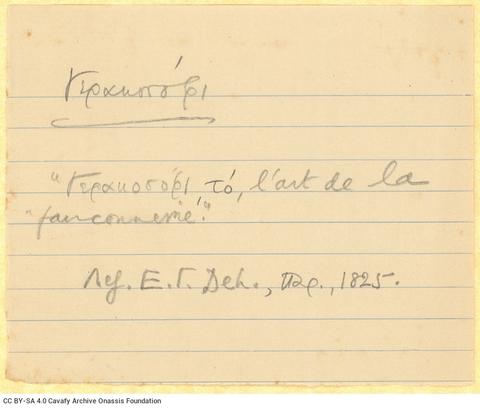 Γερακοσόφι
"Γερακοσόφι τό, l'art de la
"fauconnerie."
Λεξ. Ε. Γ. Deh., Παρ., 1825.
CC BY-SA 4.0 Cavafy Archive Onassis Foundation